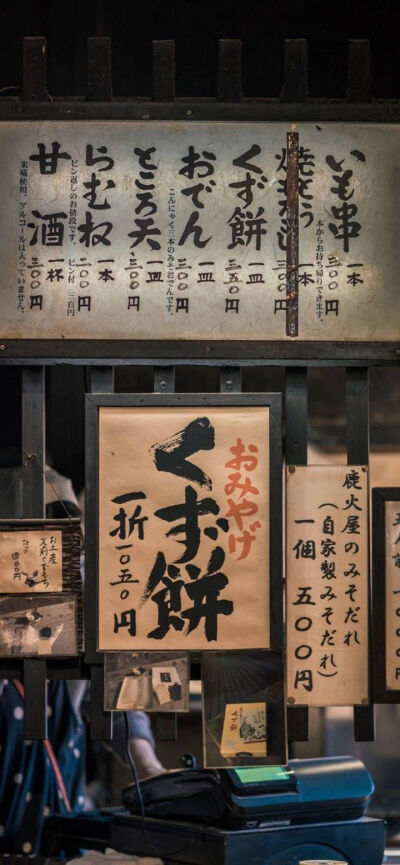 いも串
一本
三〇〇円
一本からお持ち帰りできます。
くず餅
一皿
三五〇円
おでん
一皿
三〇〇円
こんにゃく三本のみそおでんです。
ところ天
一皿
三〇〇円
らむね
一本
二〇〇円
ビン付 三百円
ビン返しのお値段です。
甘酒
一杯
三〇〇円
米糀使用 アルコールは入っていません。
おみやげ
くず餅
一折 一〇五〇円
鹿火屋のみそだれ
(自家製みそだれ)
一個 五〇〇円
お土産
くず餅